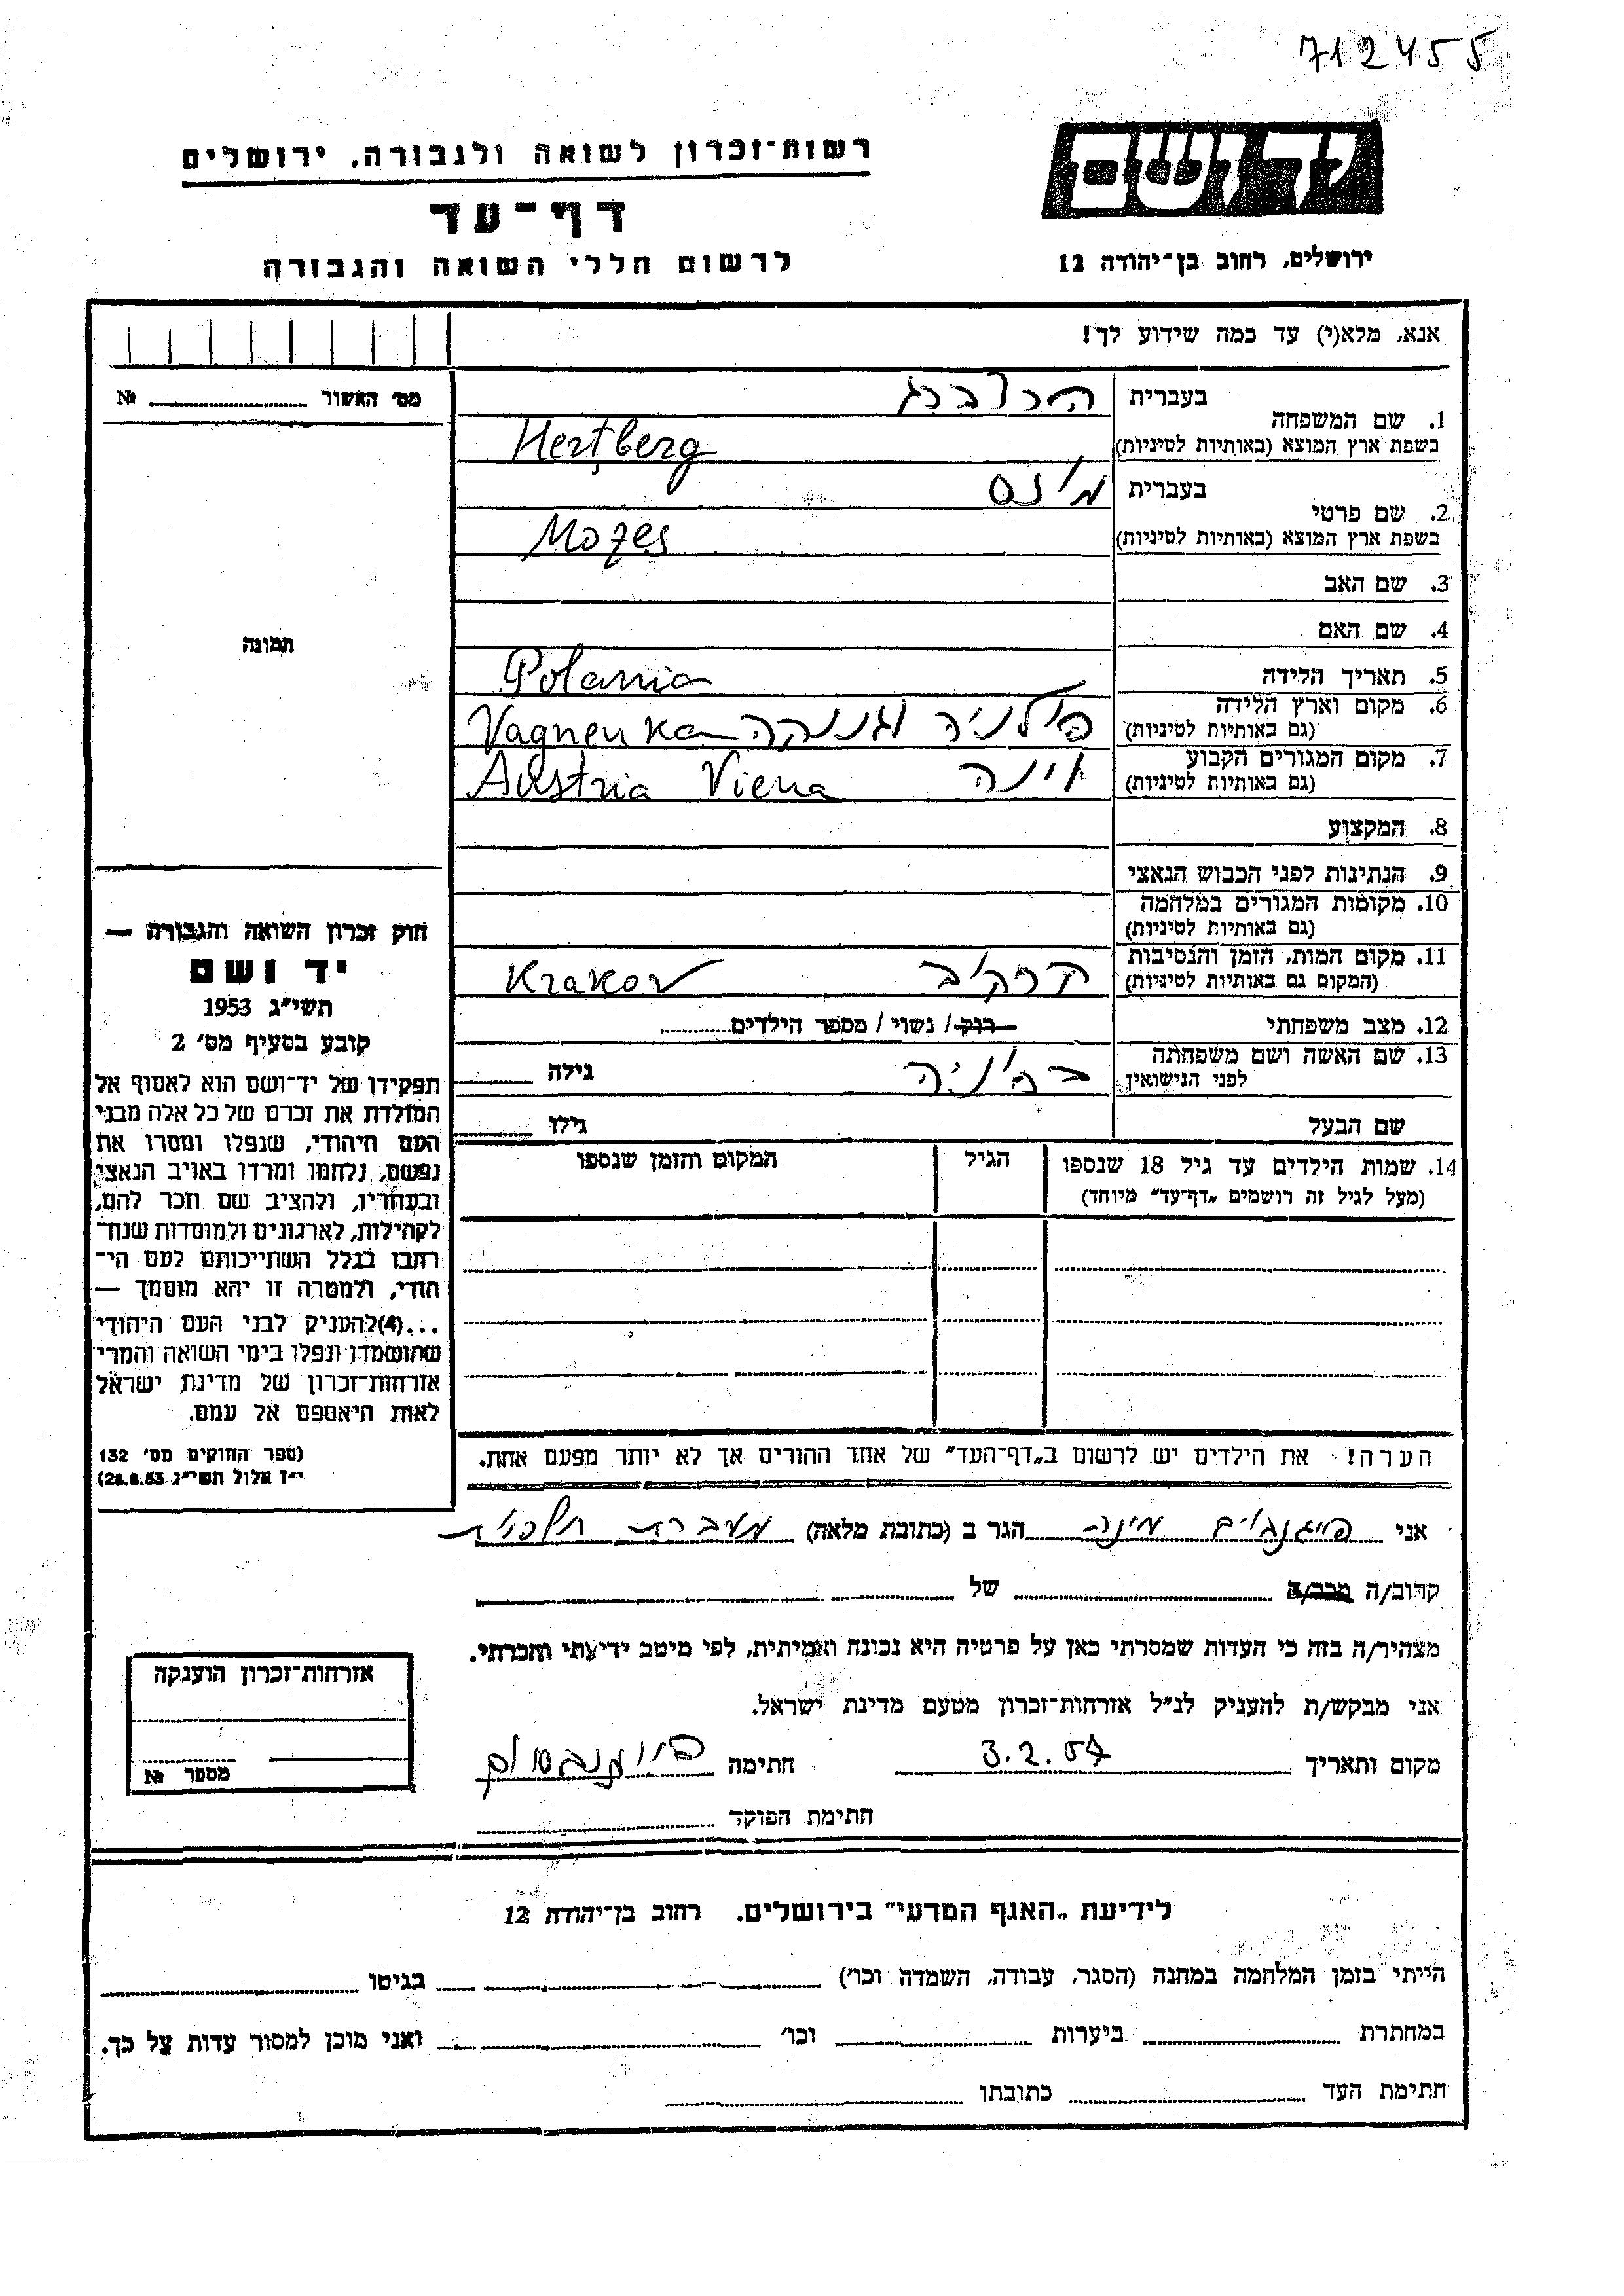 712455
יד ושם
רשות־זכרון לשואה ולגבורה, ירושלים
דף־עד
לרשום חללי השואה והגבורה
ירושלים, רחוב בן־יהודה 12
אנא, מלא(י) עד כמה שידוע לך!
מס׳ האשור ........ №
1. שם המשפחה
בעברית
הרצברג
בשפת ארץ המוצא (באותיות לטיניות)
Herţberg
2. שם פרטי
בעברית
בשפת ארץ המוצא (באותיות לטיניות)
Mozes
3. שם האב
4. שם האם
תמונה
5. תאריך הלידה
Polania
6. מקום וארץ הלידה
(גם באותיות לטיניות)
פולניה וגננקה Vagnenka
7. מקום המגורים הקבוע
(גם באותיות לטיניות)
וינה Austria Viena
8. המקצוע
9. הנתינות לפני הכבוש הנאצי
10. מקומות המגורים במלחמה
(גם באותיות לטיניות)
11. מקום המות, הזמן והנסיבות
(המקום גם באותיות לטיניות)
קרקוב Krakov
12. מצב משפחתי
רוק / נשוי / מספר הילדים........
13. שם האשה ושם משפחתה
לפני הנישואין
ברוניה
גילה
שם הבעל
גילו
14. שמות הילדים עד גיל 18 שנספו
(מעל לגיל זה רושמים „דף־עד” מיוחד)
הגיל
המקום והזמן שנספו
הערה! את הילדים יש לרשום ב„דף־העד” של אחד ההורים אך לא יותר מפעם אחת.
חוק זכרון השואה והגבורה —
יד ושם
תשי״ג 1953
קובע בסעיף מס׳ 2
תפקידו של יד־ושם הוא לאסוף אל
המולדת את זכרם של כל אלה מבני
העם היהודי, שנפלו ומסרו את
נפשם, נלחמו ומרדו באויב הנאצי
ובעוזריו, ולהציב שם וזכר להם,
לקהילות, לארגונים ולמוסדות שנח־
רבו בגלל השתייכותם לעם הי־
הודי, ולמטרה זו יהא מוסמך —
...(4)להעניק לבני העם היהודי
שהושמדו ונפלו בימי השואה והמרי
אזרחות־זכרון של מדינת ישראל
לאות היאספם אל עמם.
(ספר החוקים מס׳ 132
י״ז אלול תשי״ג 28.8.53)
אני מינה הגר ב (כתובת מלאה) מעברת תלפיות
קרוב/ה מכר/ה ........ של ........
מצהיר/ה בזה כי העדות שמסרתי כאן על פרטיה היא נכונה ואמיתית, לפי מיטב ידיעתי והכרתי.
אני מבקש/ת להעניק לנ״ל אזרחות־זכרון מטעם מדינת ישראל.
מקום ותאריך 3.2.57 חתימה
חתימת הפוקד
אזרחות־זכרון הוענקה
מספר №
לידיעת „האגף המדעי” בירושלים. רחוב בן־יהודה 12
הייתי בזמן המלחמה במחנה (הסגר, עבודה, השמדה וכו׳) ........ בגיטו ........
במחתרת ........ ביערות ........ וכו׳ ........ ואני מוכן למסור עדות על כך.
חתימת העד ........ כתובתו ........